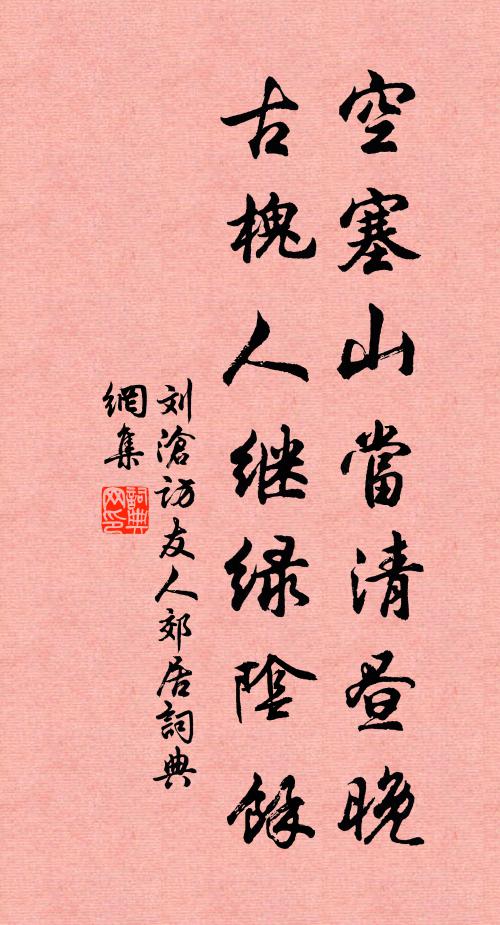 空塞山當清晝晚
古槐人継緑陰餘
刘滄訪友人郊居詞典
網集
詞典网印